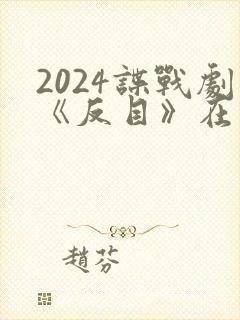 2024諜戰劇
《反目》在
趙芬